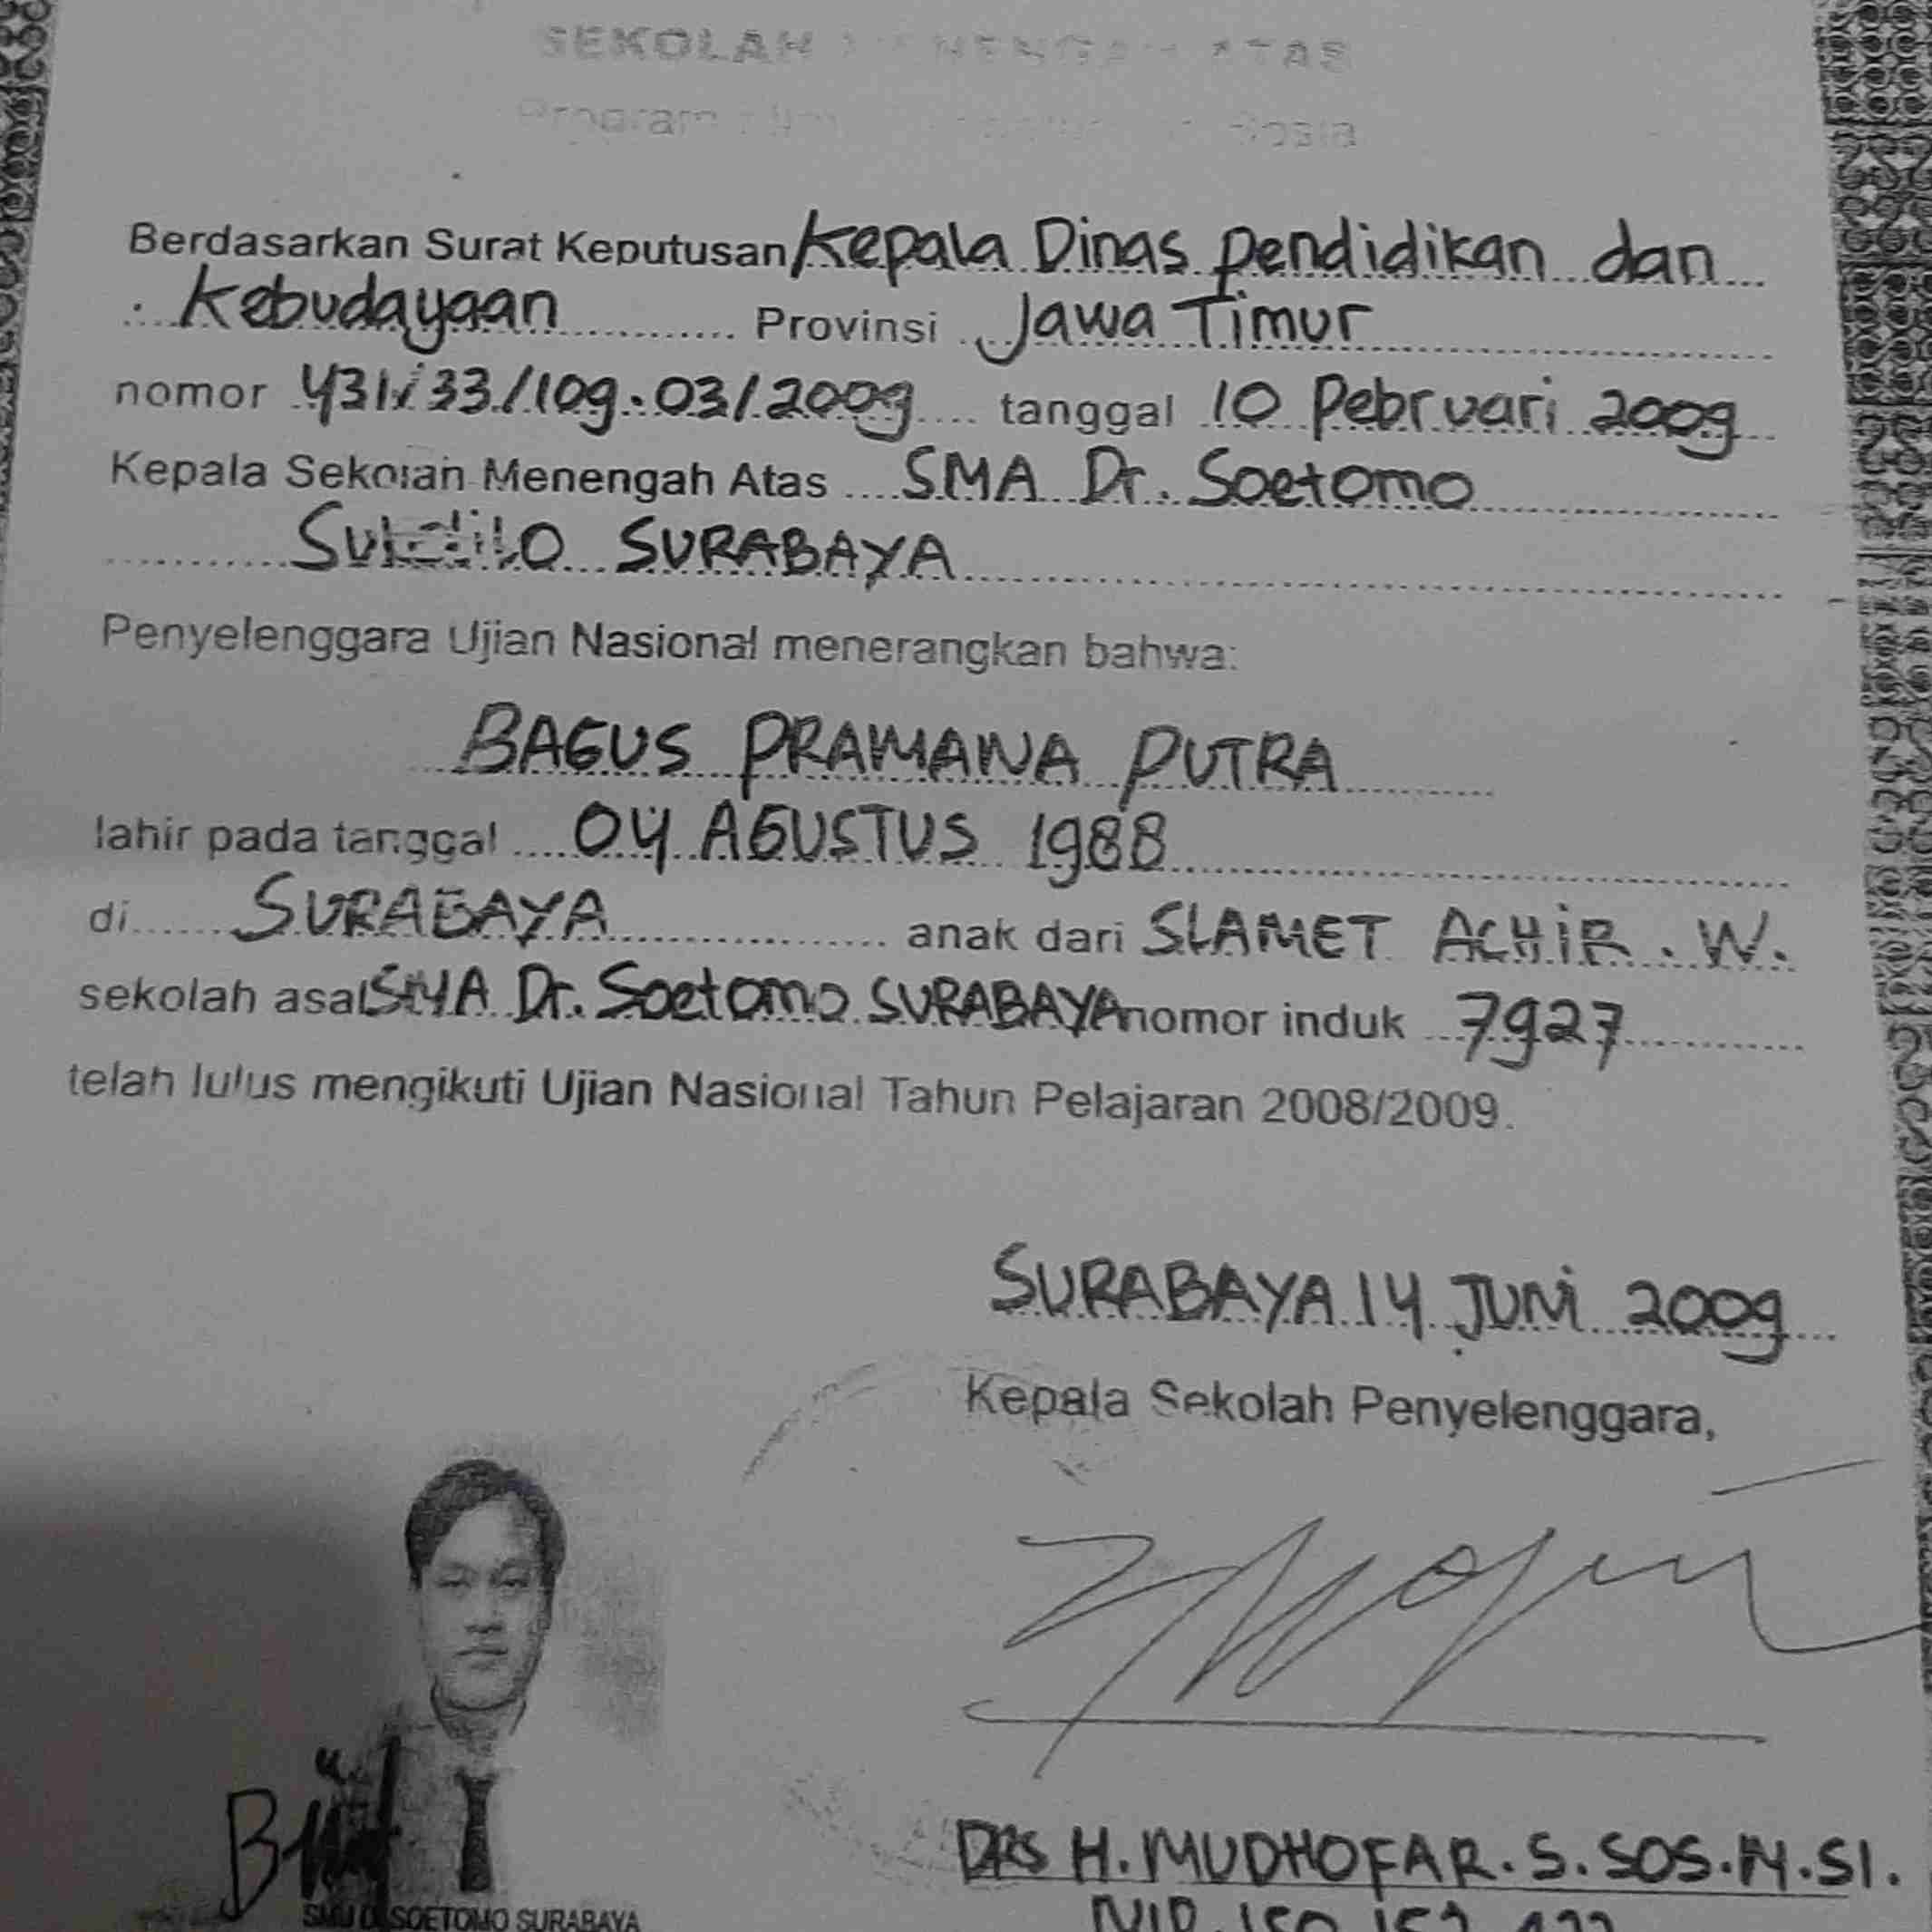 SEKOLAH MENENGAH ATAS
Program
Berdasarkan Surat Keputusan Kepala Dinas Pendidikan dan
Kebudayaan Provinsi Jawa Timur
nomor 431/33/109.03/2009 tanggal 10 Pebruari 2009
Kepala Sekolah Menengah Atas SMA Dr. Soetomo
SURABAYA
Penyelenggara Ujian Nasional menerangkan bahwa:
BAGUS PRAMANA PUTRA
lahir pada tanggal 04 AGUSTUS 1988
di SURABAYA anak dari SLAMET ACHIR. W.
sekolah asal SMA Dr. Soetomo SURABAYA nomor induk 7927
telah lulus mengikuti Ujian Nasional Tahun Pelajaran 2008/2009.
SURABAYA 14 JUNI 2009
Kepala Sekolah Penyelenggara,
DRS H. MUDHOFAR. S. SOS. M. SI.
SOETOMO SURABAYA
NIP. 150